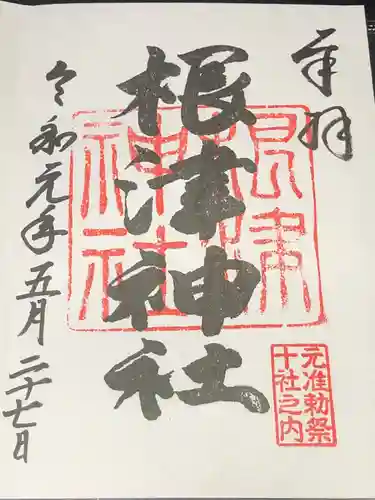 奉拝
根津神社
根津
神社
元准勅祭
十社之内
令和元年五月二十七日